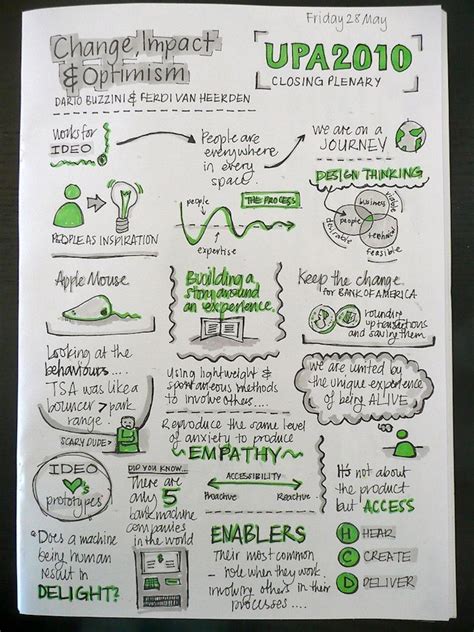 Friday 28 May
Change, Impact
& Optimism
DARIO BUZZINI & FERDI VAN HEERDEN
UPA2010
CLOSING PLENARY
works for
IDEO
People are
everywhere
in every
space.
we are on a
JOURNEY
PEOPLE AS INSPIRATION
people
THE PROCESS
expertise
DESIGN THINKING
business
viable
people
technical
desirable
feasible
Apple Mouse
Building a
story around
an experience.
Keep the change
for BANK OF AMERICA
rounding
up transactions
and saving them
Looking at the
behaviours....
TSA was like a
bouncer > park
range.
SCARY DUDE >
Using lightweight &
spontaneous methods
to involve others....
we are united by
the unique experience
of being ALIVE
Reproduce the same level
of anxiety to produce
EMPATHY
ACCESSIBILITY
Proactive
Reactive
IDEO
♥'s
prototypes
DID YOU KNOW...
There are
only 5
bank machine
companies
in the world
It's not about
the product
but ACCESS
"Does a machine
being human
result in
DELIGHT?
ENABLERS
Their most common
role when they work
involving others in their
processes....
H HEAR
C CREATE
D DELIVER